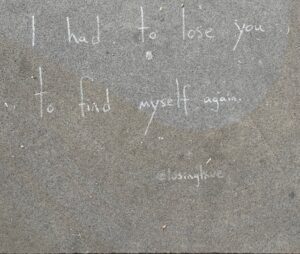 I had to lose you
to find myself again.